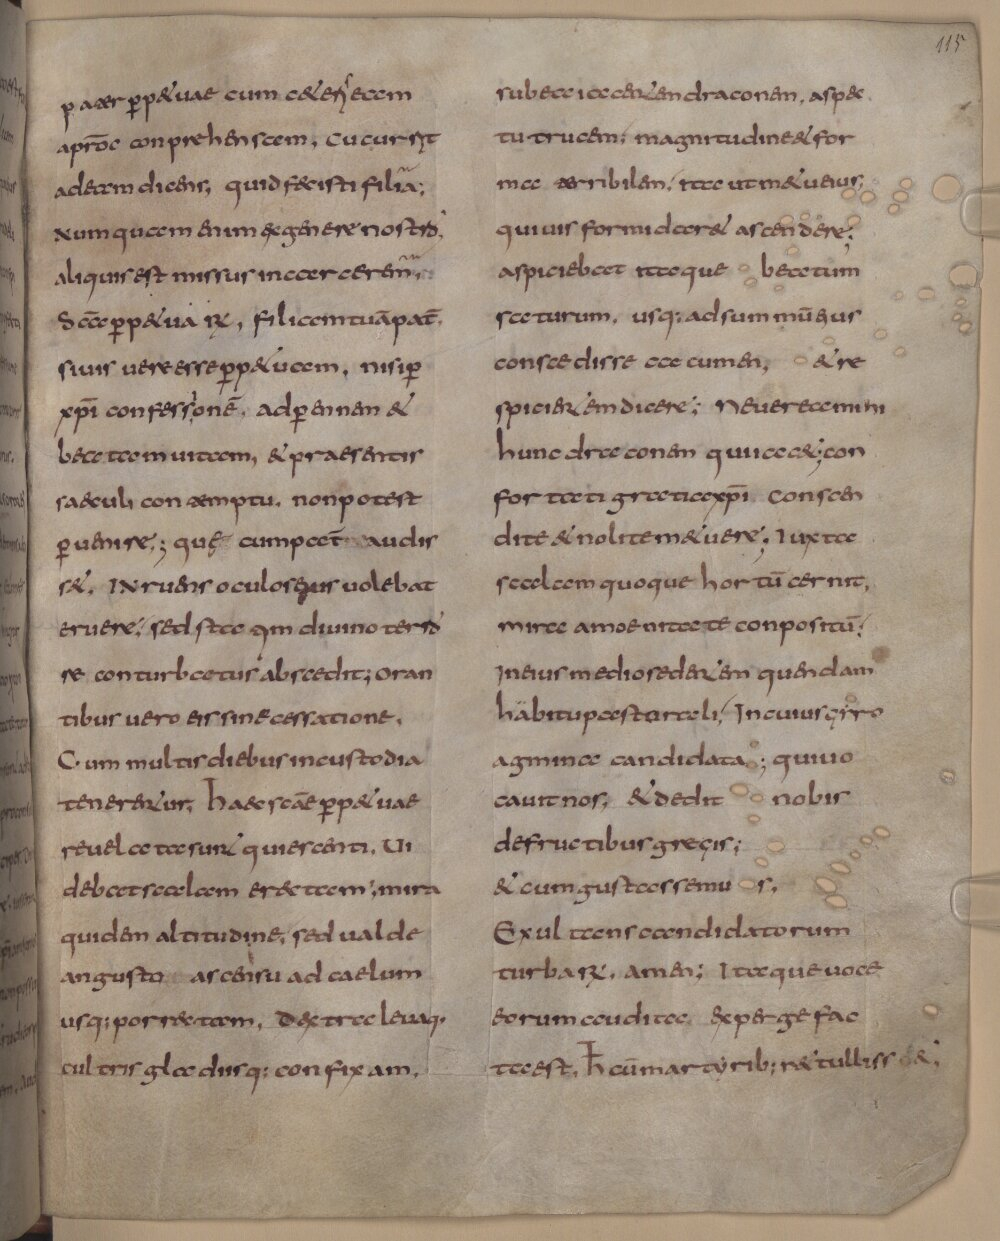 115
pater p̄p&uae cum c&eris eam
aprōc conprehensam, cucurrit
ad eam dicens, quid fecisti filia;
Numquam enim ex genere nostro,
aliquis est missus in carcerem;
Scā p̄p&ua r̄, filiam tuā pat̄,
si uis uere esse p̄p&uam, nisi p̄
xp̄i confessionē, ad p̄ennem &
beatam uitam, & praesentis
saeculi contemptu, non potest
p̄uenire; quę cum pat̄ audis
s&, Inruens oculos eius uolebat
eruere; sed statim diuino terro
re conturbatus abscedit; oran
tibus uero eis sine cessatione,
Cum multis diebus in custodia
tener&ur, haec scāe p̄p&uae
reuelata sunt quiescenti, Ui
debat scalam erectam; mira
quidem altitudine, sed ualde
angusto ascensu ad caelum
usq; porrectam, dextra leuaq,
cultris gladiisq; confixam,
sub ea iacentem draconem, aspec
tu trucem; magnitudine & for
ma terribilem; ita ut m&ueius,
quiuis formidar& ascendere;
aspiciebat itaque beatum
saturum, usq; ad summū eius
conscedisse cacumen, & re
spicientem dicere; Neuereamini
hunc draconem qui iac&; con
fortati gratia xp̄i conscen
dite & nolite m&uere; Iuxta
scalam quoque hortū cernit,
mira amoenitate conpositū;
In eius medio sedentem quendam
habitu pastorali; In cuius gyro
agmina candidata; qui uo
cauit nos, & dedit nobis
de fructibus gregis;
& cum gustassemus,
Exultans candidatorum
turba r̄, amen; Itaque uoce
eorum audita expergefac
ta est, h̄ cū martyrib; r&tuliss&;